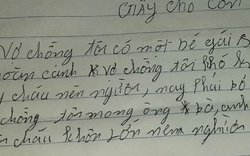 Giấy cho con
Vợ chồng tôi có một bé gái s
hoàn cảnh vợ chồng tôi khó kh
cháu nên người, nay phải bỏ
chồng tôi mong ông bà, anh
cháu khôn lớn nên người